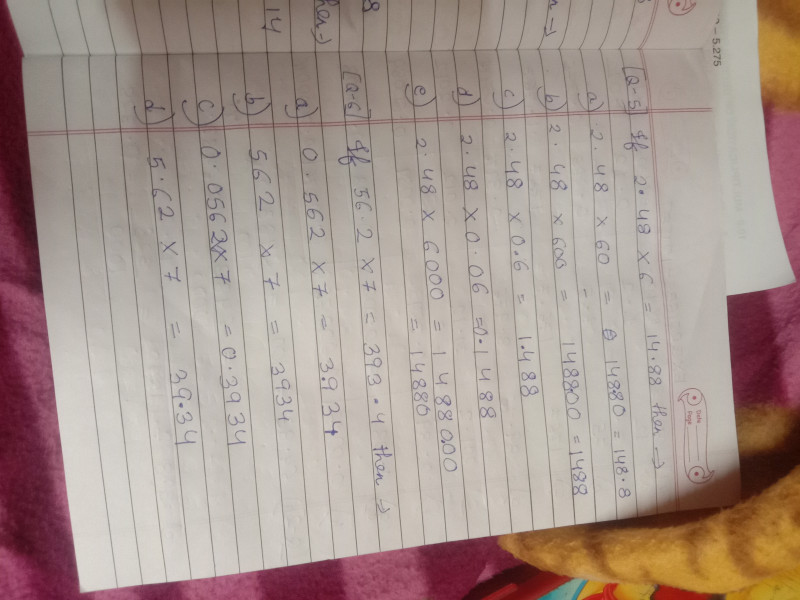 - 5.275
Date
Page
[Q-5] If 2.48 x 6 = 14.88 then →
a) 2.48 x 60 = 14880 = 148.8
b) 2.48 x 600 = 148800 = 1488
c) 2.48 x 0.6 = 1.488
d) 2.48 x 0.06 = 0.1488
e) 2.48 x 6000 = 1488000
= 14880
[Q-6] If 56.2 x 7 = 393.4 then →
a) 0.562 x 7 = 3.934
b) 562 x 7 = 3934
c) 0.0562x7 = 0.3934
d) 5.62 x 7 = 39.34